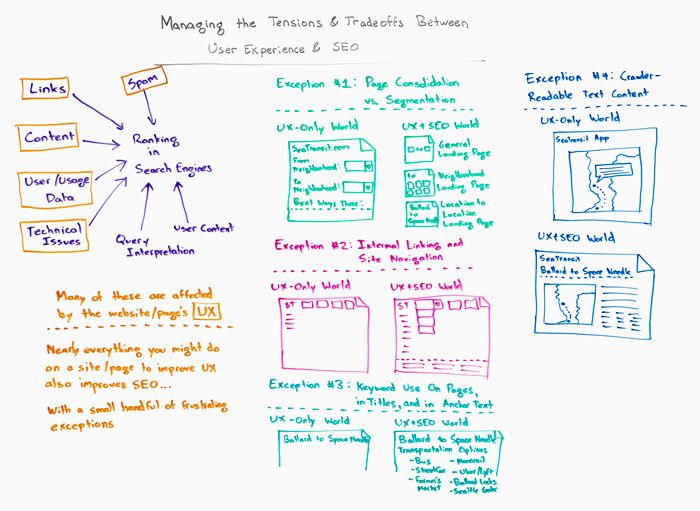 Managing the Tensions & Tradeoffs Between
User Experience & SEO
Links
Spam
Content
User/Usage
Data
Technical
Issues
Ranking
in
Search Engines
Query
Interpretation
User Context
Many of these are affected
by the website/page's UX
Nearly everything you might do
on a site/page to improve UX
also improves SEO...
With a small handful of frustrating
exceptions
Exception #1: Page Consolidation
vs. Segmentation
UX-Only World
SeaTransit.com
From
Neighborhood:
to
Neighborhood:
Best Ways There:
UX+SEO World
General
Landing Page
to
Neighborhood
Landing Page
Ballard
to Space Needle
Location to
Location
Landing Page
Exception #2: Internal Linking and
Site Navigation
UX-Only World
ST
UX+SEO World
ST
Exception #3: Keyword Use On Pages,
in Titles, and in Anchor Text
UX-Only World
Ballard to Space Needle
UX+SEO World
Ballard to Space Needle
Transportation Options
- Bus
- Streetcar
- Farmer's
Market
- Monorail
- Uber/Lyft
- Ballard Locks
- Seattle Center
Exception #4: Crawler-
Readable Text Content
UX-Only World
SeaTransit App
UX+SEO World
SeaTransit
Ballard to Space Needle